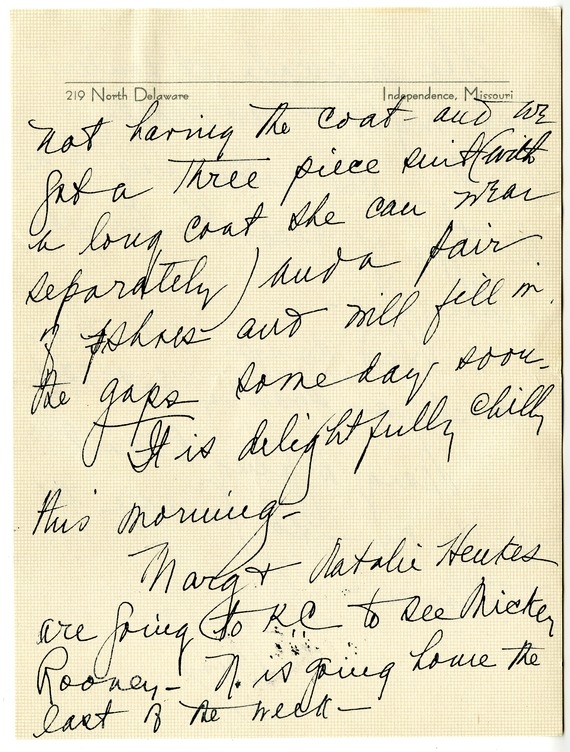 219 North Delaware Independence, Missouri
not having the coat - and we
got a three piece suit (with
a long coat she can wear
separately) and a pair
of shoes and will fill in
the gaps some day soon.
It is delightfully chilly
this morning -
Marg & Natalie
are going to KC to see Mickey
Rooney - N. is going home the
last of the week -